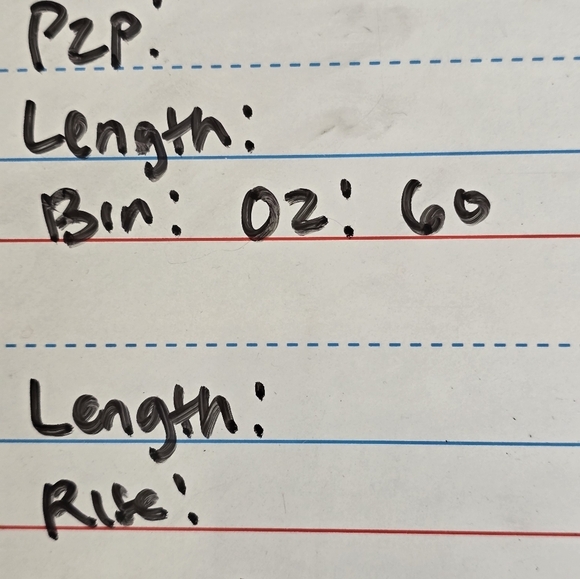 P2P:
Length:
Bin: 02: 60
Length:
Rise: